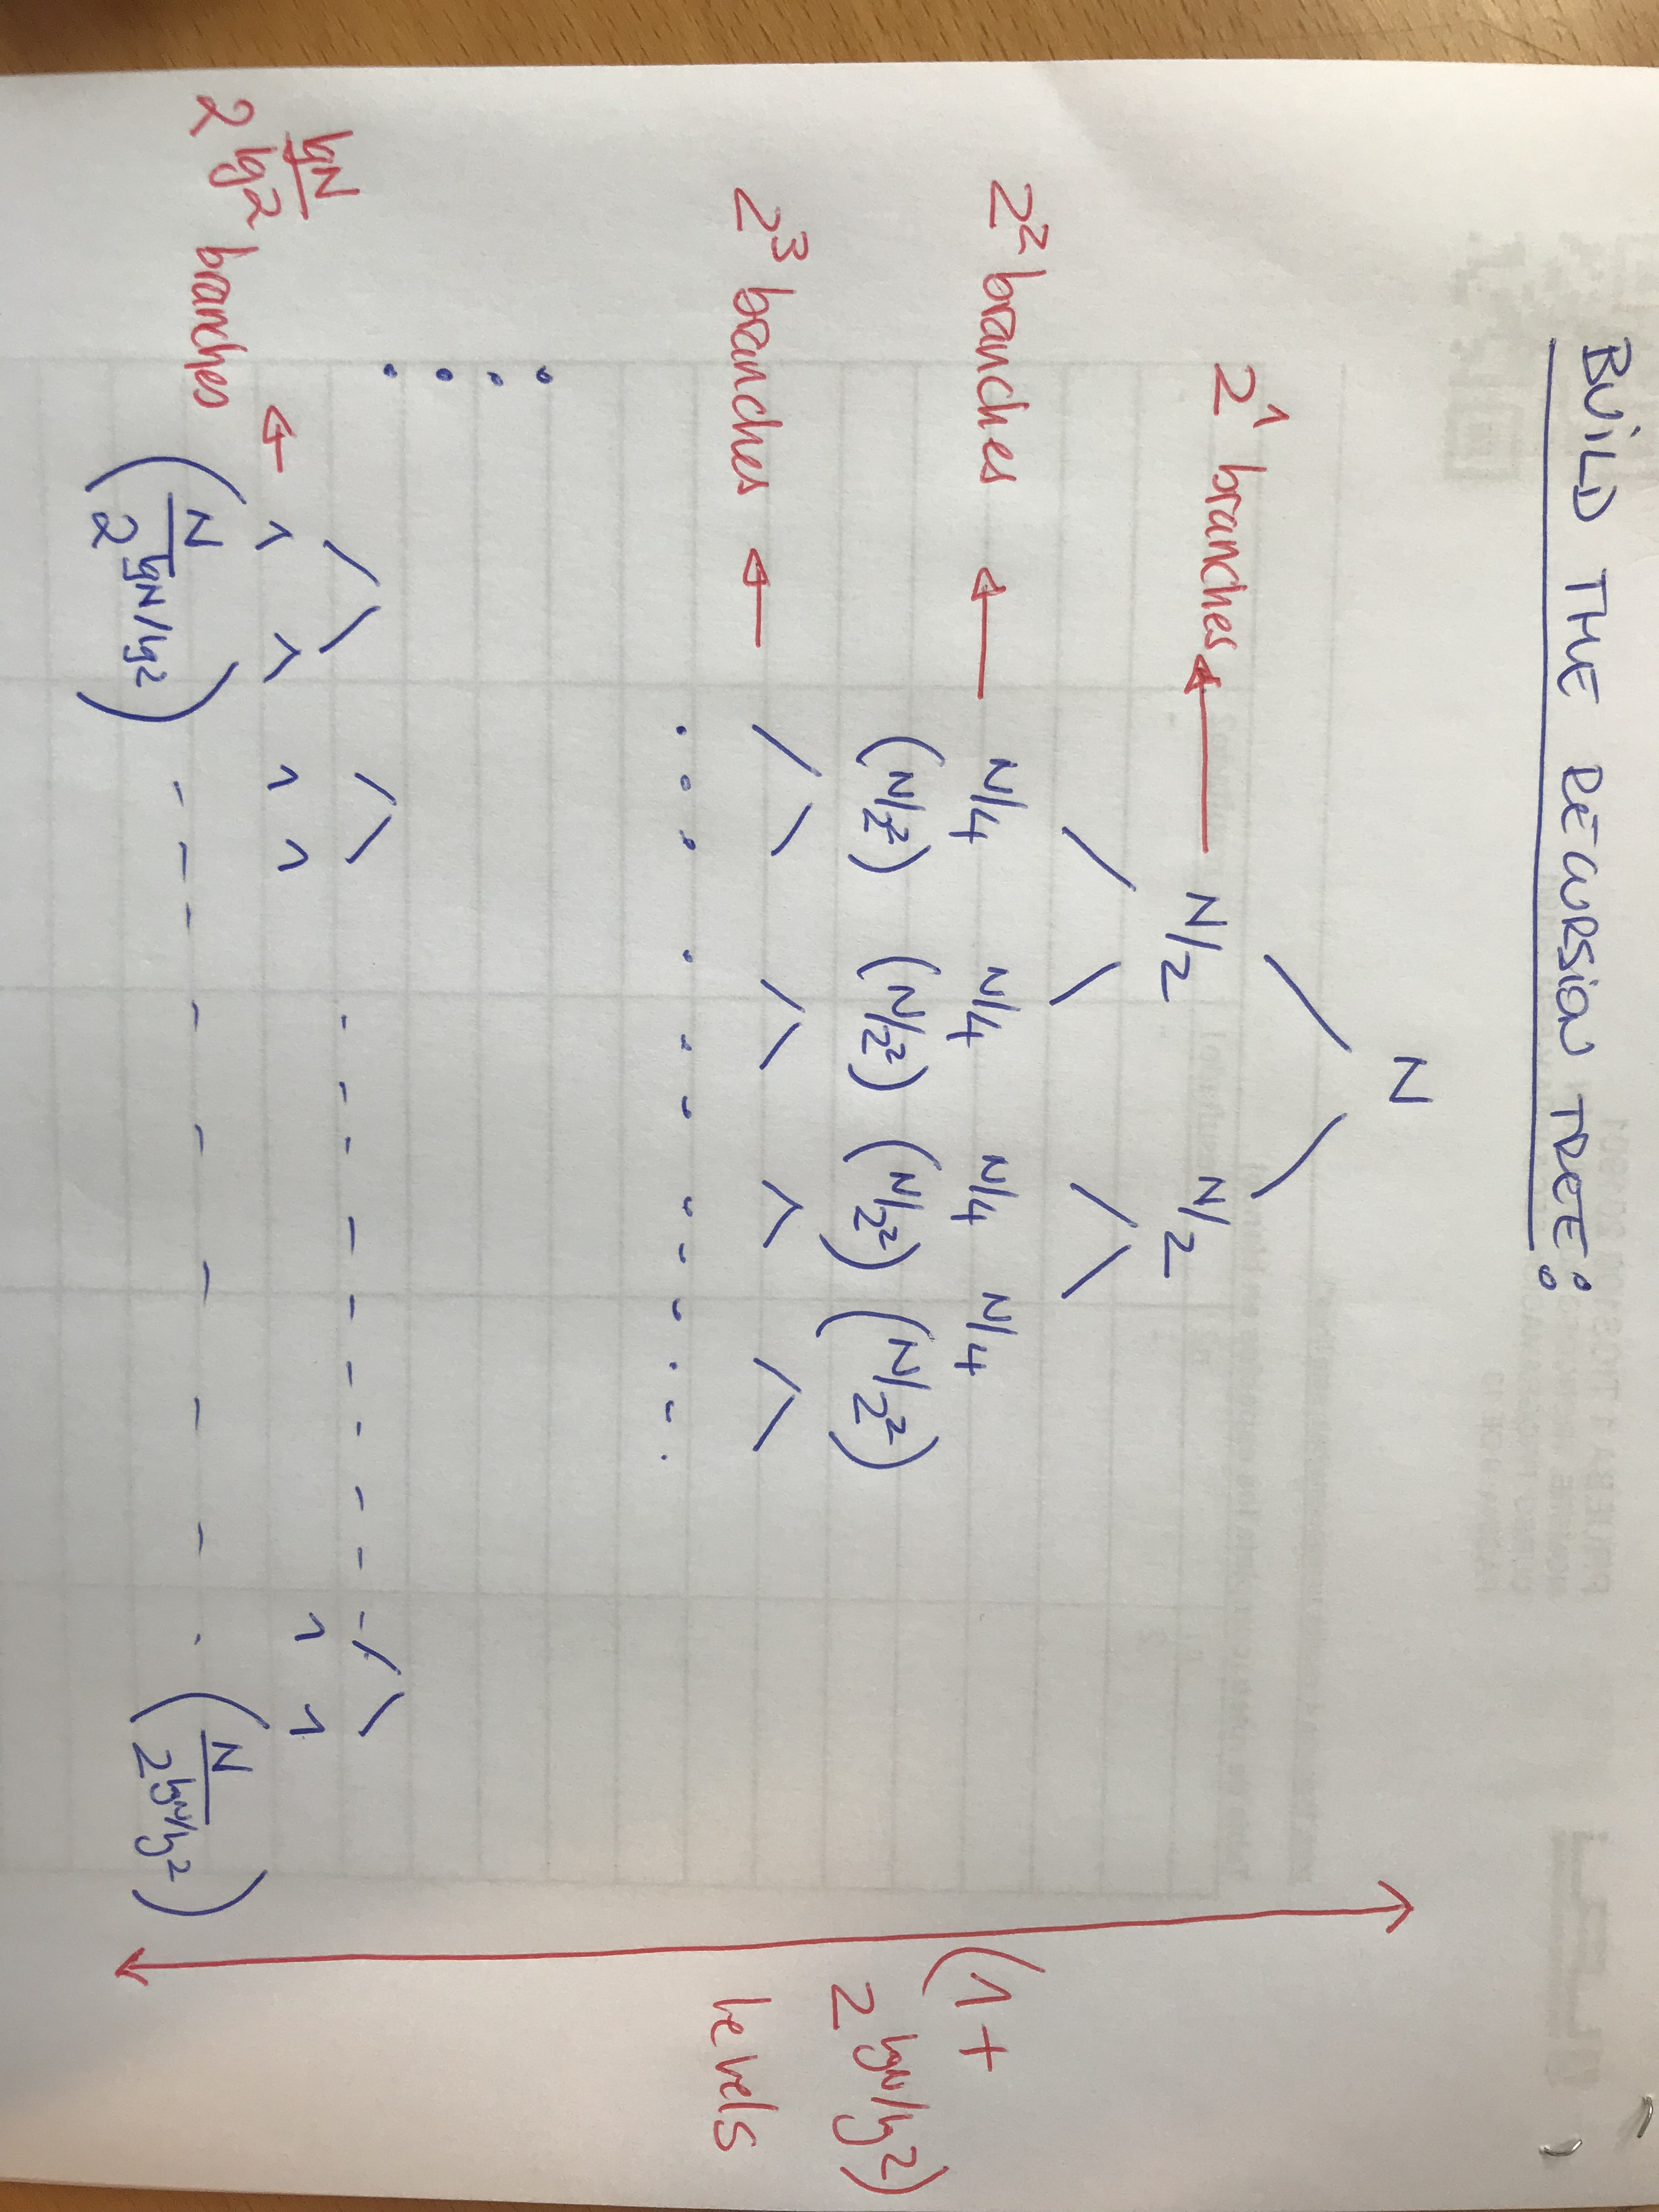 BUILD THE RECURSION TREE:
N
2^1 branches N/2 N/2
2^2 branches N/4 N/4 N/4 N/4
(N/2^2) (N/2^2) (N/2^2) (N/2^2)
2^3 branches
2^(lgN/lg2) branches 1 1 1 1 1 1
(N/2^(lgN/lg2)) (N/2^(lgN/lg2))
(1+
2^(lgN/lg2))
levels